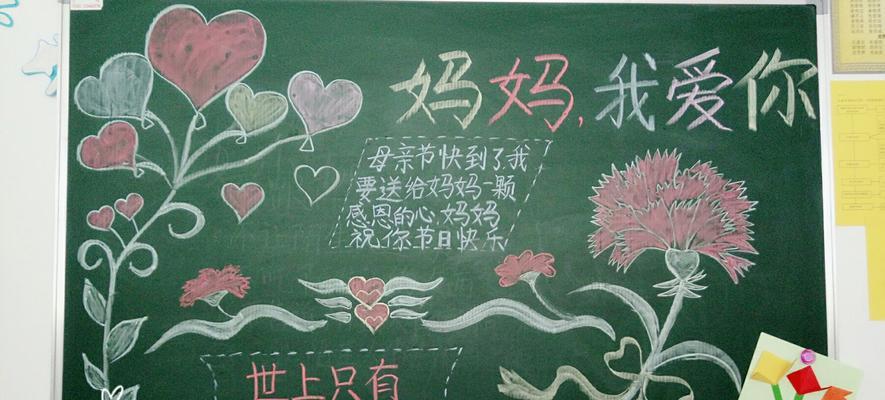 妈妈,我爱你
母亲节快到了我
要送给妈妈一颗
感恩的心妈妈
祝你节日快乐
世上只有